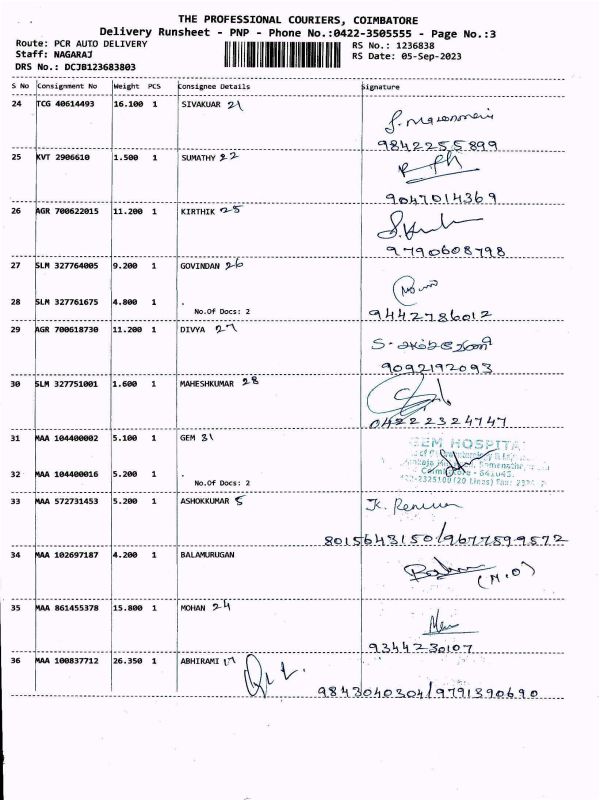 THE PROFESSIONAL COURIERS, COIMBATORE
Delivery Runsheet - PNP - Phone No.:0422-3505555 - Page No.:3
Route: PCR AUTO DELIVERY
Staff: NAGARAJ
DRS No.: DCJB123683803
RS No.: 1236838
RS Date: 05-Sep-2023
S No Consignment No Weight PCS Consignee Details Signature
24 TCG 40614493 16.100 1 SIVAKUAR 21
9842255899
25 KVT 2906610 1.500 1 SUMATHY 22
9047014369
26 AGR 700622015 11.200 1 KIRTHIK 25
9790608798
27 SLM 327764005 9.200 1 GOVINDAN 26
28 SLM 327761675 4.800 1 .
No.Of Docs: 2
9442786012
29 AGR 700618730 11.200 1 DIVYA 27
9092192093
30 SLM 327751001 1.600 1 MAHESHKUMAR 28
04222324747
31 MAA 104400002 5.100 1 GEM 31
GEM HOSPITA
32 MAA 104400016 5.200 1 .
No.Of Docs: 2
33 MAA 572731453 5.200 1 ASHOKKUMAR 5
8015643150/9677599572
34 MAA 102697187 4.200 1 BALAMURUGAN
(M.O)
35 MAA 861455378 15.800 1 MOHAN 24
9344230107
36 MAA 100837712 26.350 1 ABHIRAMI 17
9843040304/9791390690